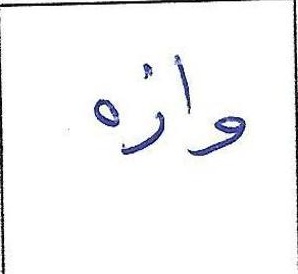 واژه